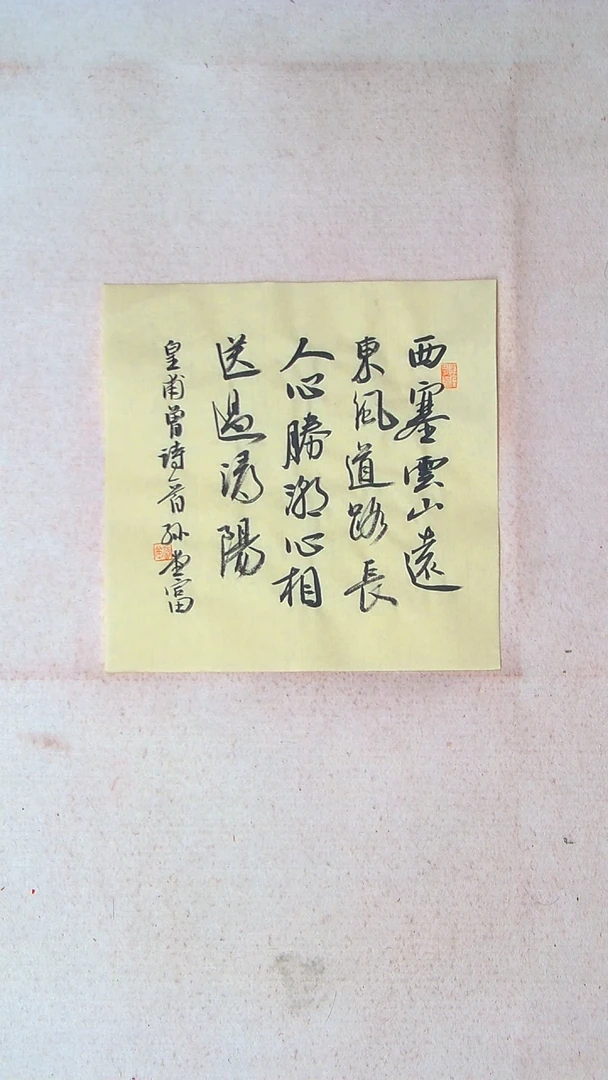 西塞雲山遠
東風道路長
人心勝潮心相
送過潯陽
皇甫曾诗一首 孙 富